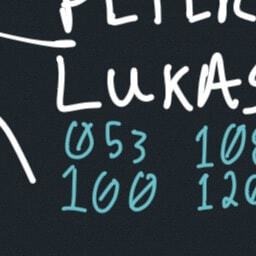 PETER
LUKAS
053 108
100 120